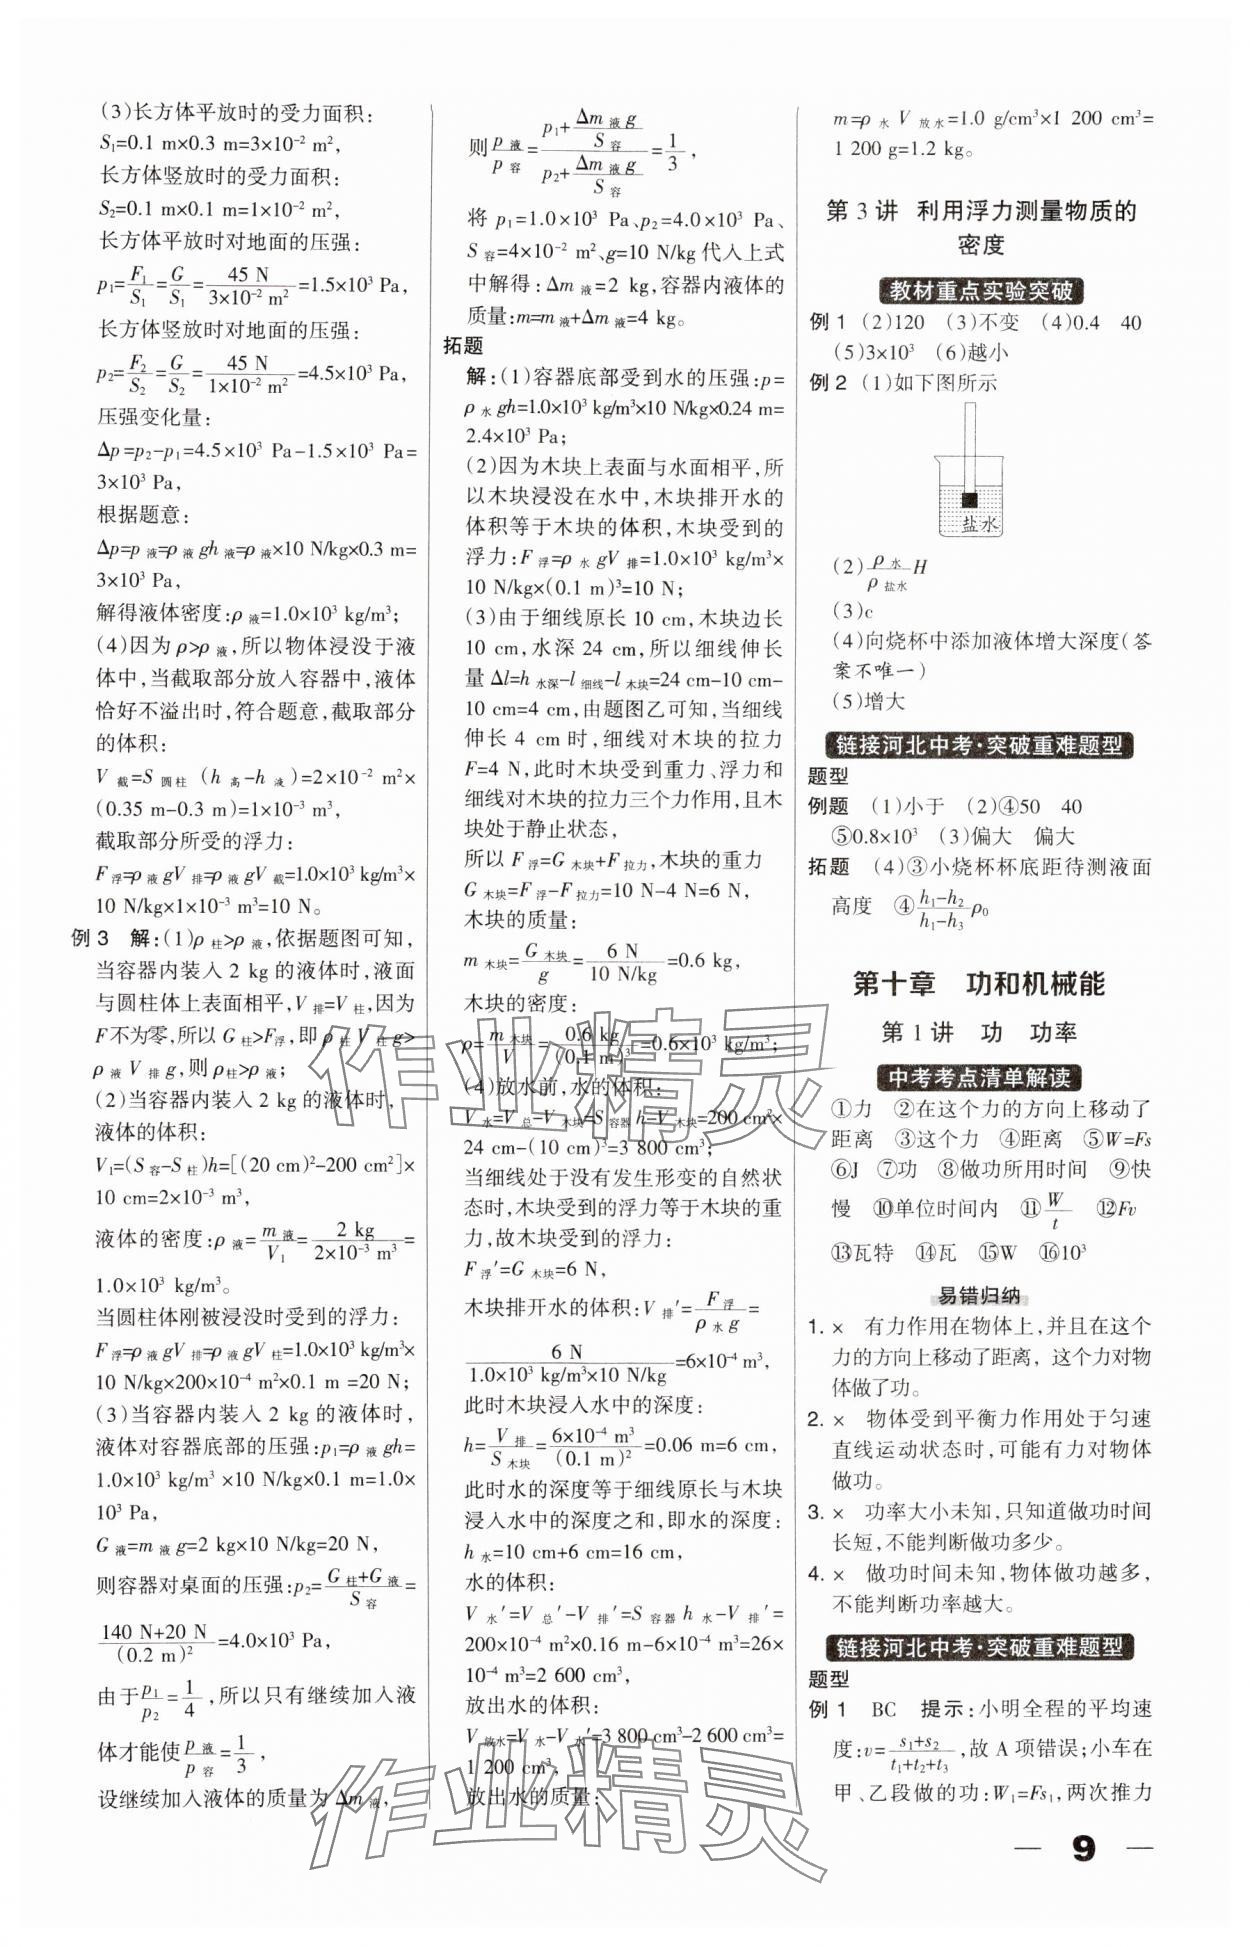 (3)长方体平放时的受力面积:
S₁=0.1 m×0.3 m=3×10⁻² m²,
长方体竖放时的受力面积:
S₂=0.1 m×0.1 m=1×10⁻² m²,
长方体平放时对地面的压强:
p₁=F₁/S₁=G/S₁=45 N/(3×10⁻² m²)=1.5×10³ Pa,
长方体竖放时对地面的压强:
p₂=F₂/S₂=G/S₂=45 N/(1×10⁻² m²)=4.5×10³ Pa,
压强变化量:
Δp=p₂-p₁=4.5×10³ Pa-1.5×10³ Pa=
3×10³ Pa,
根据题意:
Δp=p液=ρ液gh液=ρ液×10 N/kg×0.3 m=
3×10³ Pa,
解得液体密度:ρ液=1.0×10³ kg/m³;
(4)因为ρ>ρ液,所以物体浸没于液
体中,当截取部分放入容器中,液体
恰好不溢出时,符合题意,截取部分
的体积:
V截=S圆柱(h高-h液)=2×10⁻² m²×
(0.35 m-0.3 m)=1×10⁻³ m³,
截取部分所受的浮力:
F浮=ρ液gV排=ρ液gV截=1.0×10³ kg/m³×
10 N/kg×1×10⁻³ m³=10 N。
例3 解:(1)ρ柱>ρ液,依据题图可知,
当容器内装入2 kg的液体时,液面
与圆柱体上表面相平,V排=V柱,因为
F不为零,所以G柱>F浮,即ρ柱V柱g>
ρ液V排g,则ρ柱>ρ液;
(2)当容器内装入2 kg的液体时,
液体的体积:
V₁=(S容-S柱)h=[(20 cm)²-200 cm²]×
10 cm=2×10⁻³ m³,
液体的密度:ρ液=m液/V₁=2 kg/(2×10⁻³ m³)=
1.0×10³ kg/m³。
当圆柱体刚被浸没时受到的浮力:
F浮=ρ液gV排=ρ液gV柱=1.0×10³ kg/m³×
10 N/kg×200×10⁻⁴ m²×0.1 m =20 N;
(3)当容器内装入2 kg的液体时,
液体对容器底部的压强:p₁=ρ液gh=
1.0×10³ kg/m³ ×10 N/kg×0.1 m=1.0×
10³ Pa,
G液=m液g=2 kg×10 N/kg=20 N,
则容器对桌面的压强:p₂=(G柱+G液)/S容=
(140 N+20 N)/(0.2 m)²=4.0×10³ Pa,
由于p₁/p₂=1/4,所以只有继续加入液
体才能使p液/p容=1/3,
设继续加入液体的质量为Δm液,
则p液/p容=(p₁+Δm液g/S容)/(p₂+Δm液g/S容)=1/3,
将p₁=1.0×10³ Pa、p₂=4.0×10³ Pa、
S容=4×10⁻² m²、g=10 N/kg代入上式
中解得:Δm液=2 kg,容器内液体的
质量:m=m液+Δm液=4 kg。
拓题
解:(1)容器底部受到水的压强:p=
ρ水gh=1.0×10³ kg/m³×10 N/kg×0.24 m=
2.4×10³ Pa;
(2)因为木块上表面与水面相平,所
以木块浸没在水中,木块排开水的
体积等于木块的体积,木块受到的
浮力:F浮=ρ水gV排=1.0×10³ kg/m³×
10 N/kg×(0.1 m)³=10 N;
(3)由于细线原长10 cm,木块边长
10 cm,水深24 cm,所以细线伸长
量Δl=h水深-l细线-l木块=24 cm-10 cm-
10 cm=4 cm,由题图乙可知,当细线
伸长4 cm时,细线对木块的拉力
F=4 N,此时木块受到重力、浮力和
细线对木块的拉力三个力作用,且木
块处于静止状态,
所以F浮=G木块+F拉力,木块的重力
G木块=F浮-F拉力=10 N-4 N=6 N,
木块的质量:
m木块=G木块/g=6 N/(10 N/kg)=0.6 kg,
木块的密度:
ρ=m木块/V=0.6 kg/(0.1 m)³=0.6×10³ kg/m³;
(4)放水前,水的体积:
V水=V总-V木块=S容器h-V木块=200 cm²×
24 cm-(10 cm)³=3 800 cm³;
当细线处于没有发生形变的自然状
态时,木块受到的浮力等于木块的重
力,故木块受到的浮力:
F浮′=G木块=6 N,
木块排开水的体积:V排′=F浮/(ρ水g)=
6 N/(1.0×10³ kg/m³×10 N/kg)=6×10⁻⁴ m³,
此时木块浸入水中的深度:
h=V排/S木块=6×10⁻⁴ m³/(0.1 m)²=0.06 m=6 cm,
此时水的深度等于细线原长与木块
浸入水中的深度之和,即水的深度:
h水=10 cm+6 cm=16 cm,
水的体积:
V水′=V总′-V排′=S容器h水-V排′=
200×10⁻⁴ m²×0.16 m-6×10⁻⁴ m³=26×
10⁻⁴ m³=2 600 cm³;
放出水的体积:
V放水=V水-V水′=3 800 cm³-2 600 cm³=
1 200 cm³,
放出水的质量:
m=ρ水V放水=1.0 g/cm³×1 200 cm³=
1 200 g=1.2 kg。
第3讲 利用浮力测量物质的
密度
教材重点实验突破
例1 (2)120 (3)不变 (4)0.4 40
(5)3×10³ (6)越小
例2 (1)如下图所示
盐水
(2)ρ水/ρ盐水 H
(3)c
(4)向烧杯中添加液体增大深度(答
案不唯一)
(5)增大
链接河北中考·突破重难题型
题型
例题 (1)小于 (2)④50 40
⑤0.8×10³ (3)偏大 偏大
拓题 (4)③小烧杯杯底距待测液面
高度 ④(h₁-h₂)/(h₁-h₃)ρ₀
第十章 功和机械能
第1讲 功 功率
中考考点清单解读
①力 ②在这个力的方向上移动了
距离 ③这个力 ④距离 ⑤W=Fs
⑥J ⑦功 ⑧做功所用时间 ⑨快
慢 ⑩单位时间内 ⑪W/t ⑫Fv
⑬瓦特 ⑭瓦 ⑮W ⑯10³
易错归纳
1. × 有力作用在物体上,并且在这个
力的方向上移动了距离,这个力对物
体做了功。
2. × 物体受到平衡力作用处于匀速
直线运动状态时,可能有力对物体
做功。
3. × 功率大小未知,只知道做功时间
长短,不能判断做功多少。
4. × 做功时间未知,物体做功越多,
不能判断功率越大。
链接河北中考·突破重难题型
题型
例1 BC 提示:小明全程的平均速
度:v=(s₁+s₂)/(t₁+t₂+t₃),故A项错误;小车在
甲、乙段做的功:W₁=Fs₁,两次推力
— 9 —
作业精灵
作业精灵